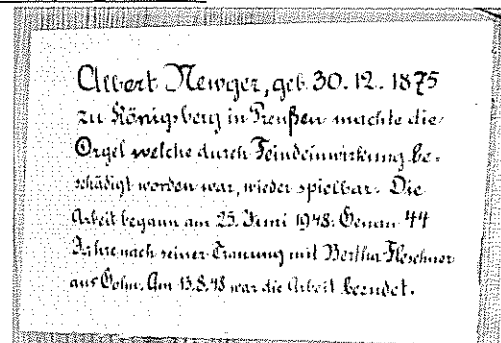 Albert Newger, geb. 30. 12. 1875
zu Königsberg in Preußen machte die
Orgel welche durch Feindeinwirkung be-
schädigt worden war, wieder spielbar. Die
Arbeit begann am 25. Juni 1948. Genau 44
Jahre nach seiner Trauung mit Bertha
aus Am 13.8.48 war die Arbeit beendet.